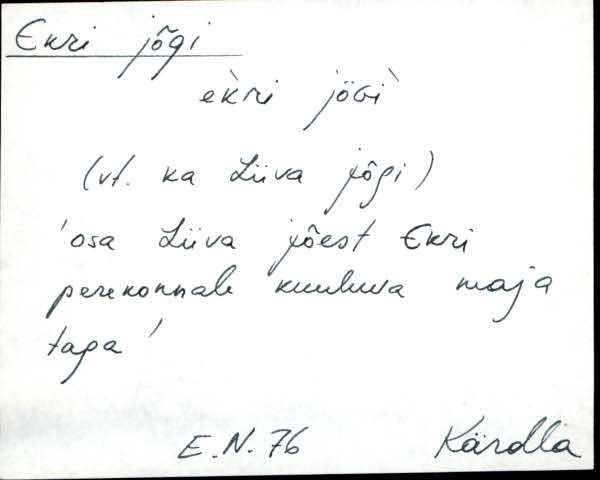 Ekri jõgi
èkri jöGì
(vt. ka Liiva jõgi)
'osa Liiva jõest Ekri
perekonnale kuuluva maja
taga'
E.N. 76 Kärdla